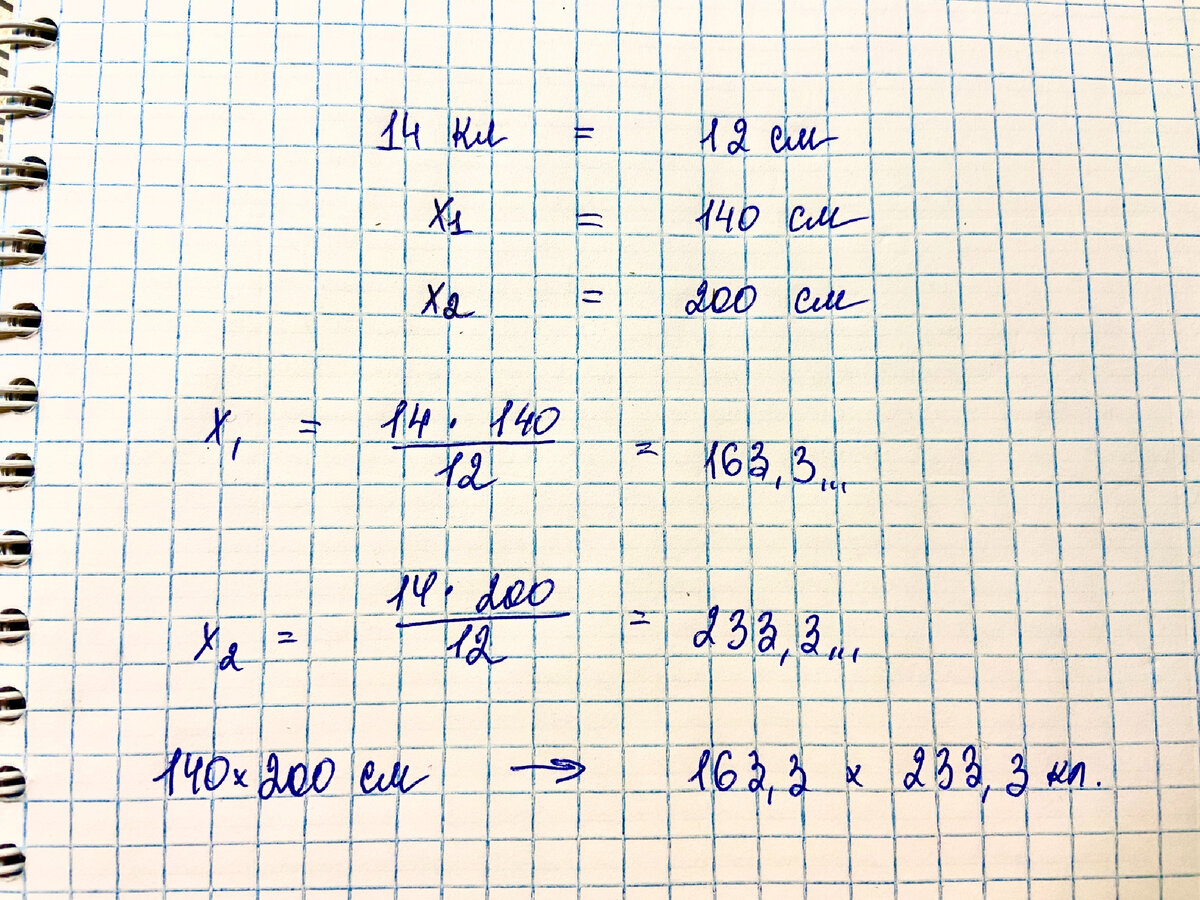 14 кл = 12 см
X1 = 140 см
X2 = 200 см
X1 = 14 · 140 / 12 = 163,3...
X2 = 14 · 200 / 12 = 233,3...
140 × 200 см → 163,3 × 233,3 кл.